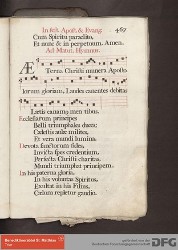 In fest. Apost. & Evang. 467
Cum Spiritu paraclito,
Et nunc & in perpetuum. Amen.
Ad Matut. Hymnus.
Æ Terna Christi munera Aposto-
lorum gloriam, Laudes canentes debitas
Lætis canamus mentibus.
Ecclesiarum principes
Belli triumphales duces:
Cælestis aulæ milites,
Et vera mundi lumina.
Devota sanctorum fides,
Invicta spes credentium,
Perfecta Christi charitas,
Mundi triumphat principem.
In his paterna gloria,
In his voluntas Spiritus,
Exultat in his Filius,
Cælum repletur gaudio.
DFG